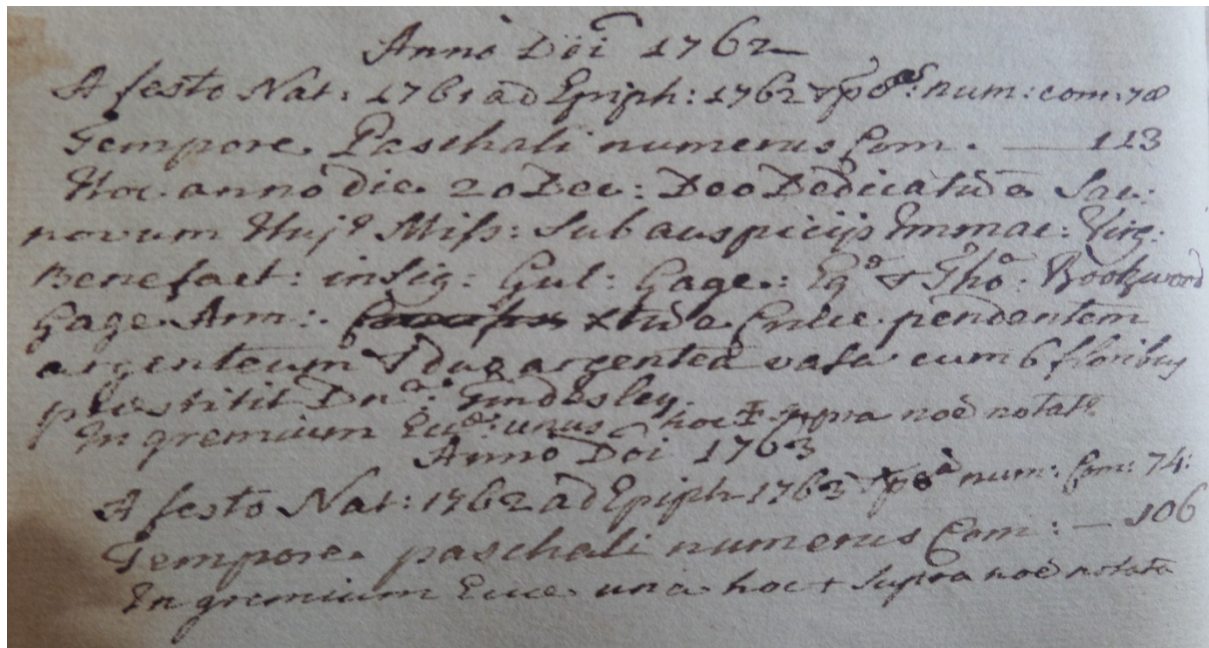 Anno Dōi 1762
A festo Nat: 1761 ad Epiph: 1762 num: com: 78
Tempore Paschali numerus Com. — 113
Hoc anno die 20 Dec: Deo Dedicatū e Sac:
novum Hujs Miss: Sub auspicijs Immac: Virg:
Benefact: insig: Gul: Gage: Eqo & Tho: Rookwood
Gage Arm: Xtū e Cruce pendentem
argenteum & duo argentea vasa cum 6 floribus
præstitit Dna: Tyndesley.
In gremium Ecc: unus hoc + supra noē notats
Anno Dōi 1763
A festo Nat: 1762 ad Epiph 1763 num: Com: 74:
Tempore paschali numerus Com: — 106
In gremium Ecce una hoc + supra noē notata